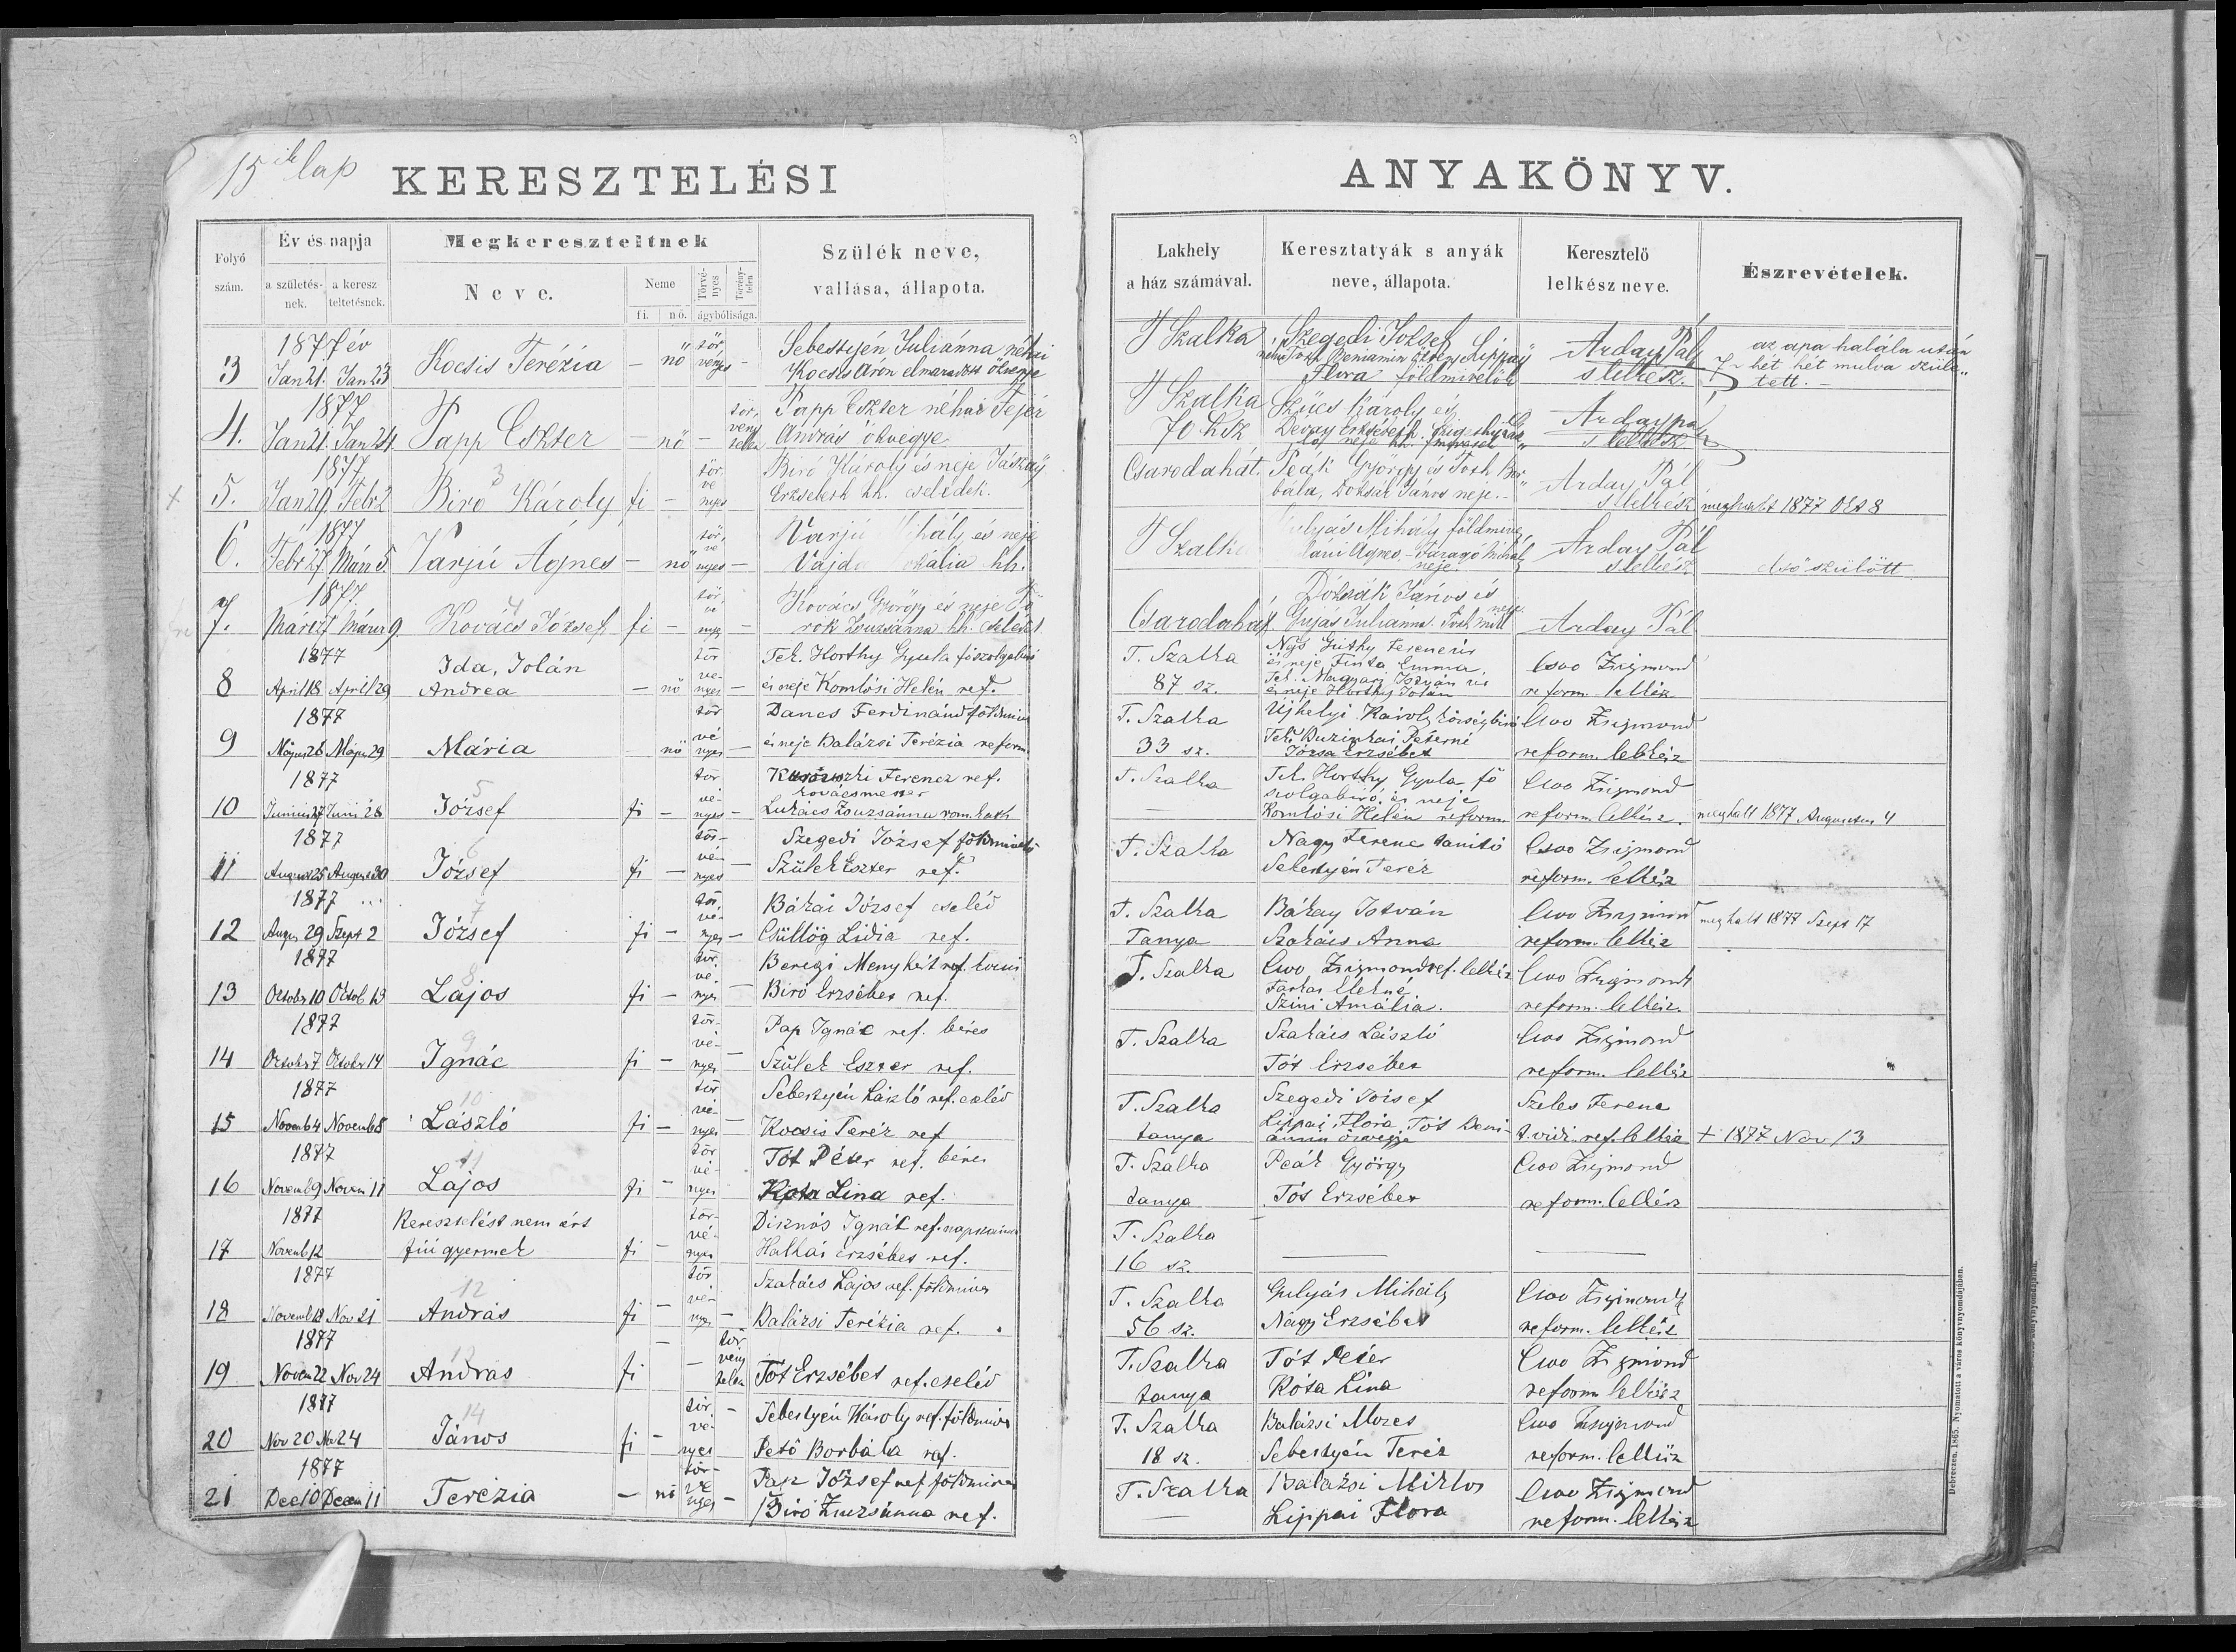 15ik lap
KERESZTELÉSI
ANYAKÖNYV.
Folyó szám.
Év és napja
a születés-nek.
a keresz teltetésnek.
Megkereszteltnek
Neve.
Neme
fi. nő.
Törvényes
Törvénytelen
ágybólisága.
Szülék neve,
vallása, állapota.
Lakhely
a ház számával.
Keresztatyák s anyák
neve, állapota.
Keresztelő
lelkész neve.
Észrevételek.
1877 év
3 Jan 21. Jan 23 Kocsis Terézia — nő törvényes — Sebestyén Juliánna néhai
Kocsis Áron elmaradott özvegye
T Szalka Szegedi József
Lippay
Flora földmivelők
Arday Pál
s lelkész.
az apa halála után
7 hét hét mulva szüle„
tett. —
1877
4. Jan 21. Jan 24. Papp Eszter — nő — törvénytelen Papp Eszter néhai Fejér
András özvegye
T Szalka
70 hsz
Szücs Károly és
Arday Pál
s lelkész
1877
3
5. Jan 29. Febr 2 Biró Károly fi — törvényes Biró Károly és neje Jászay
Erzsébeth hh. cselédek.
Csarodahát. Peák György és Toth Bor„
bála, Dobsák János neje. —
Arday Pál
s lelkész
meghalt 1877 Okt 8
1877
6. Febr 27. Márz 5. Varjú Ágnes — nő törvényes — Varjú Mihály és neje
Vajda hh.
T Szalka
Gulyás Mihály földmive,
Ágnes — Faragó Mihály
neje.
Arday Pál
s lelkész
elsőszülött
1877
4
7. Márcz 7 Márcz 9 Kovács József fi — törvényes — Kovács György és neje Tö
rök Zsuzsánna hh. cseléd
Csarodahát
Dobsák János és
Juliánna.
Arday Pál
1877
8 April 18 April 29 Ida, Jolán
Andrea — nő törvényes — Tek. Horthy Gyula főszolgabiró
és neje Komlósi Helén ref.
T. Szalka
87 sz.
Ngs Guthy Ferencz úr
és neje Finta Emma,
Tek. Magyari István úr
és neje Horthy Jolán
Csoo Zsigmond
reform. lelkész
1877
9 Május 26 Május 29 Mária nő törvényes — Dancs Ferdinánd földmives
és neje Balázsi Terézia reform
T. Szalka
33 sz.
Ujhelyi Károly községbiró
Tek. Buzinkai Péterné
Józsa Erzsébet
Csoo Zsigmond
reform. lelkész
1877
5
10 Junius 27 Juni 28 József fi — törvényes — Ferencz ref.
kovácsmester
Lukács Zsuzsánna rom. kath
T. Szalka
—
Tek. Horthy Gyula fő
szolgabiró és neje
Komlósi Helén reform.
Csoo Zsigmond
reform. lelkész.
meghalt 1877 Augusztus 4
1877
6
11 August 25 August 30 József fi — törvényes — Szegedi József földmivelő
Szülek Eszter ref.
T. Szalka
Nagy Ferenc tanitó
Sebestyén Teréz
Csoo Zsigmond
reform. lelkész
1877
7
12 Augus 29 Szept 2 József fi — törvényes — Bákai József cseléd
Csüllög Lidia ref.
T. Szalka
Tanya
Bákay István
Szakács Anna
Csoo Zsigmond
reform. lelkész
meghalt 1877 Szept 17
1877
8
13 October 10 Octob 13 Lajos fi — törvényes — Beregi Menyhért ref. kocsis
Biró Erzsébet ref.
T. Szalka
Csoo Zsigmond ref. lelkész
Farkas Elekné
Szini Amália.
Csoo Zsigmond
reform. lelkész
1877
9
14 October 7 October 14 Ignác fi — törvényes — Pap Ignác ref. béres
Szülek Eszter ref.
T. Szalka
Szakács László
Tót Erzsébet
Csoo Zsigmond
reform. lelkész
1877
10
15 Novemb 4 Novemb 8 László fi — törvényes — Sebestyén László ref. cseléd
Kocsis Teréz ref
T. Szalka
tanya
Szegedi József
Lippai Flóra, Tót Beni-
ámin özvegye
Szeles Ferenc
t. vidi ref. lelkész
+ 1877 Nov 13
1877
11
16 Novemb 9 Novem 11 Lajos fi — törvényes Tót Péter ref. béres
Kota Lina ref.
T. Szalka
tanya
Peák György
Tót Erzsébet
Csoo Zsigmond
reform. lelkész
1877
17 Novemb 12 Keresztelést nem ért
fiú gyermek fi — törvényes Disznós Ignác ref. napszámos
Halkai Erzsébet ref.
T. Szalka
16 sz.
1877
12
18 Novemb 18 Nov 21 András fi — törvényes — Szakács Lajos ref. földmives
Balázsi Terézia ref.
T. Szalka
56 sz.
Gulyás Mihály
Nagy Erzsébet
Csoo Zsigmond
reform. lelkész
1877
13
19 Novem 22 Nov 24 András fi — törvénytelen Tót Erzsébet ref. cseléd
T. Szalka
tanya
Tót Péter
Kóta Lina
Csoo Zsigmond
reform lelkész
1877
14
20 Nov 20 Nov 24 János fi — törvényes — Sebestyén Károly ref. földmives
Pető Borbála ref.
T. Szalka
18 sz.
Balázsi Mozes
Sebestyén Teréz
Csoo Zsigmond
reform. lelkész
1877
21 Dec 10 Decem 11 Terézia — nő törvényes — Pap József ref földmives
Biró Zsuzsánna ref.
T. Szalka
—
Balázsi Miklos
Lippai Flora
Csoo Zsigmond
reform. lelkész
Debreczen. 1865. Nyomatott a város könyvnyomdájában.